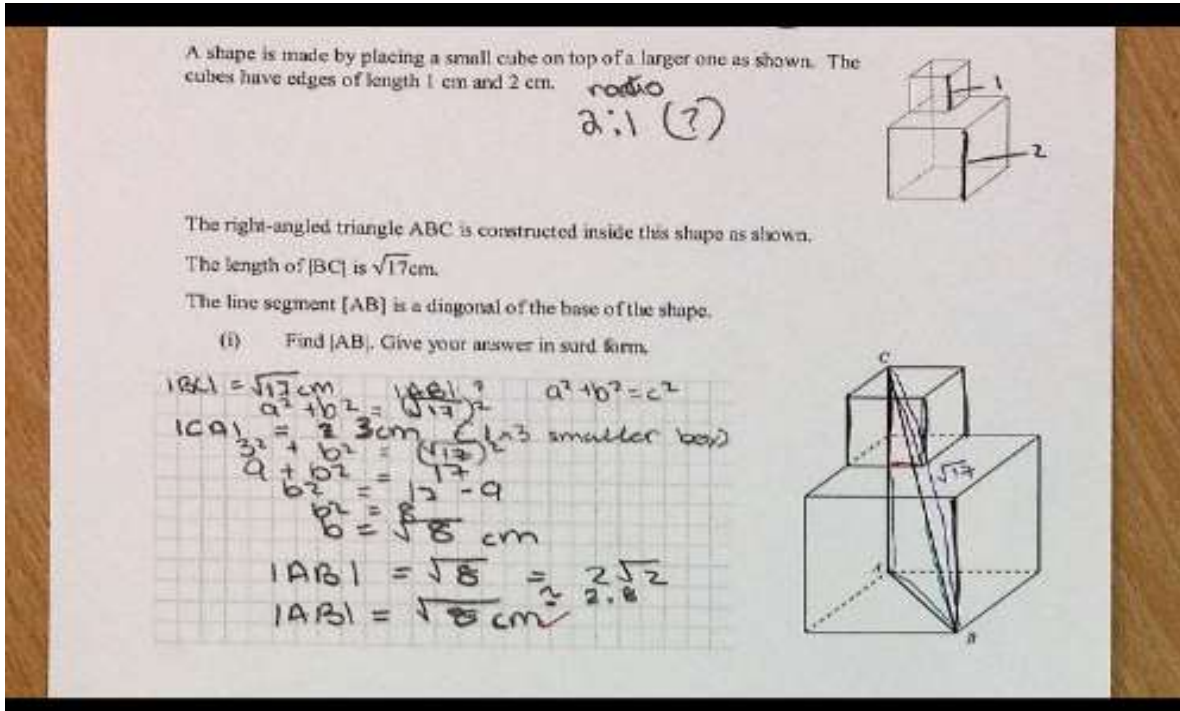 A shape is made by placing a small cube on top of a larger one as shown. The
cubes have edges of length 1 cm and 2 cm.
ratio
2:1 (?)
1
2
The right-angled triangle ABC is constructed inside this shape as shown.
The length of |BC| is √17cm.
The line segment [AB] is a diagonal of the base of the shape.
(i) Find |AB|. Give your answer in surd form.
|BC| = √17 cm |AB| ? a² + b² = c²
a² + b² = (√17)²
|CA| = 3cm smaller box)
3² + b² = (√17)²
9 + b² = 17
b² = 17 - 9
b² = 8
b = √8 cm
|AB| = √8 = 2√2
2.8
|AB| = √8 cm
C
√17
A
B